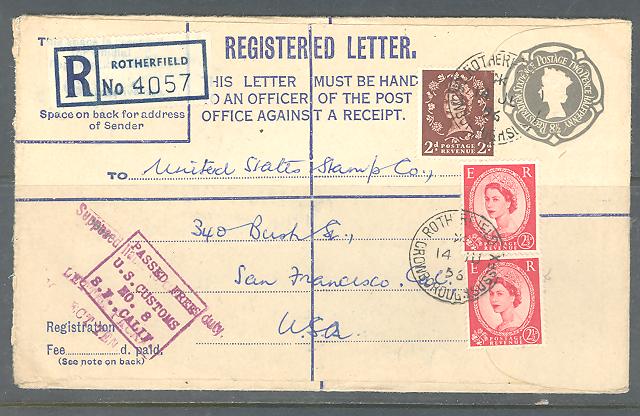 REGISTERED LETTER.
R ROTHERFIELD
No 4057
THIS LETTER MUST BE HAND
TO AN OFFICER OF THE POST
OFFICE AGAINST A RECEIPT.
Space on back for address
of Sender
2d POSTAGE REVENUE 2d
TO United States Stamp Co.,
340 Bush St.,
San Francisco, Cal.
USA.
E R
2½d POSTAGE REVENUE 2½d
E R
2½d POSTAGE REVENUE 2½d
ROTHERFIELD
14 JU
56
CROWBOROUGH SUSSEX
Supposed
PASSED FREE duty.
U.S. CUSTOMS
NO. 8
S.F. CALIF
Registration
Fee d. paid.
(See note on back)